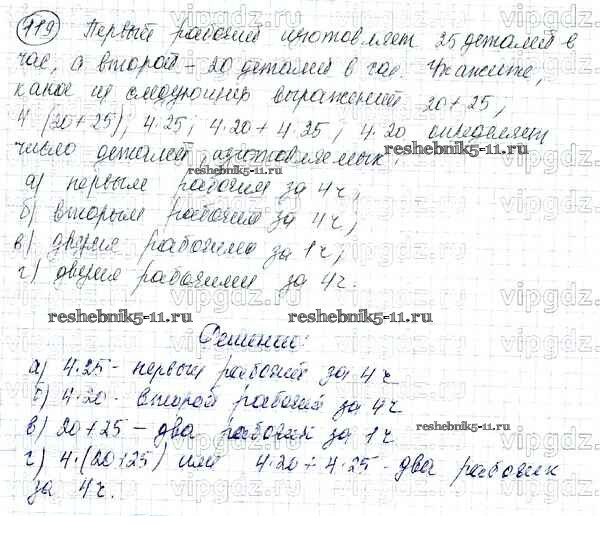 119 Первый рабочий изготовляет 25 деталей в
час, а второй - 20 деталей в час. Укажите,
какое из следующих выражений 20+25,
4·(20+25); 4·25; 4·20+4·25; 4·20 определяет
число деталей, изготовляемых:
reshebnik5-11.ru
а) первым рабочим за 4ч;
б) вторым рабочим за 4ч;
в) двумя рабочими за 1ч;
г) двумя рабочими за 4ч.
reshebnik5-11.ru
Решение:
а) 4·25 - первый рабочий за 4ч
б) 4·20 - второй рабочий за 4ч
в) 20+25 - два рабочих за 1ч
г) 4·(20+25) или 4·20+4·25 - два рабочих
за 4ч.
reshebnik5-11.ru
reshebnik5-11.ru
vipgdz.com